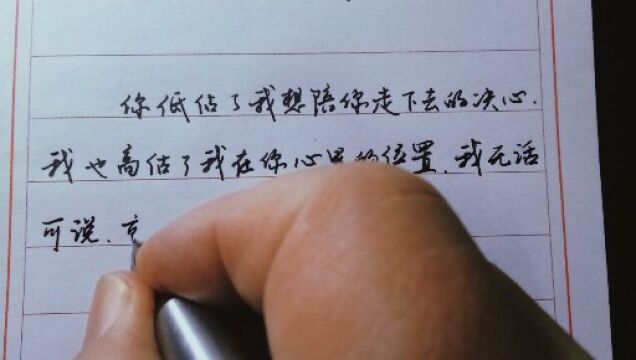 你低估了我想陪你走下去的决心.
我也高估了我在你心里的位置.我无话
可说.